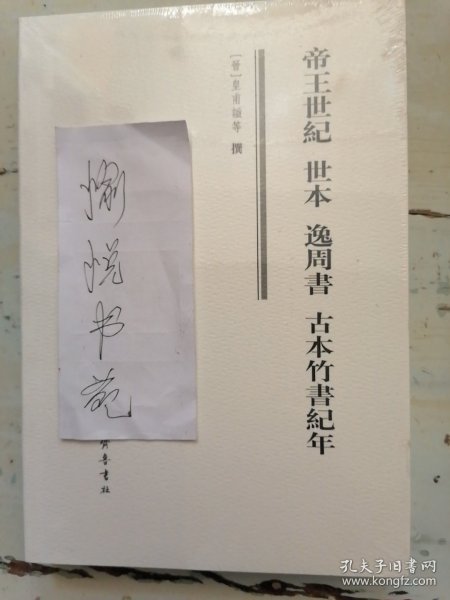 帝王世紀 世本 逸周書 古本竹書紀年
[晉]皇甫謐等 撰
愉悦书苑
齊魯書社
孔夫子旧书网
www.kongfz.com